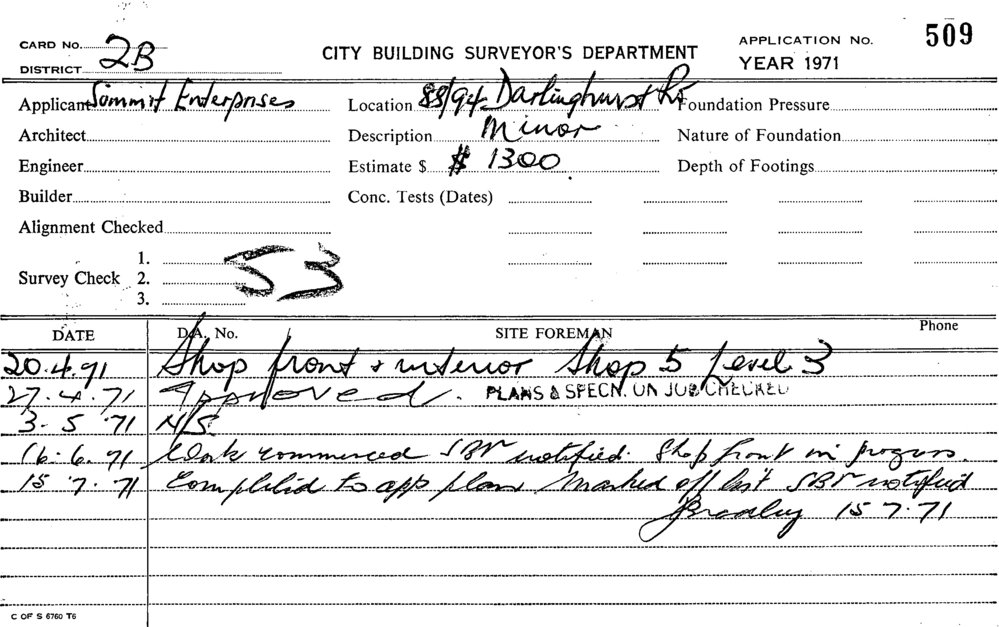 CARD No. 2B
DISTRICT
CITY BUILDING SURVEYOR'S DEPARTMENT
APPLICATION No. 509
YEAR 1971
Applicant Sommit Enterprises Location 88/94 Darlinghurst Rd Foundation Pressure
Architect Description Minor Nature of Foundation
Engineer Estimate $ $ 1300 Depth of Footings
Builder Conc. Tests (Dates)
Alignment Checked
1.
Survey Check 2. 53
3.
DATE D.A. No. SITE FOREMAN Phone
20.4.71 Shop front + interior Shop 5 Level 3
27.4.71 Approved. PLANS & SPECN. ON JOB CHECKED
3.5.71 N/S
16.6.71 Work commenced SBV notified. Shop front in progress.
15.7.71 Completed to app plans Marked off list SBV notified
Bradley 15.7.71
C OF S 6760 T6